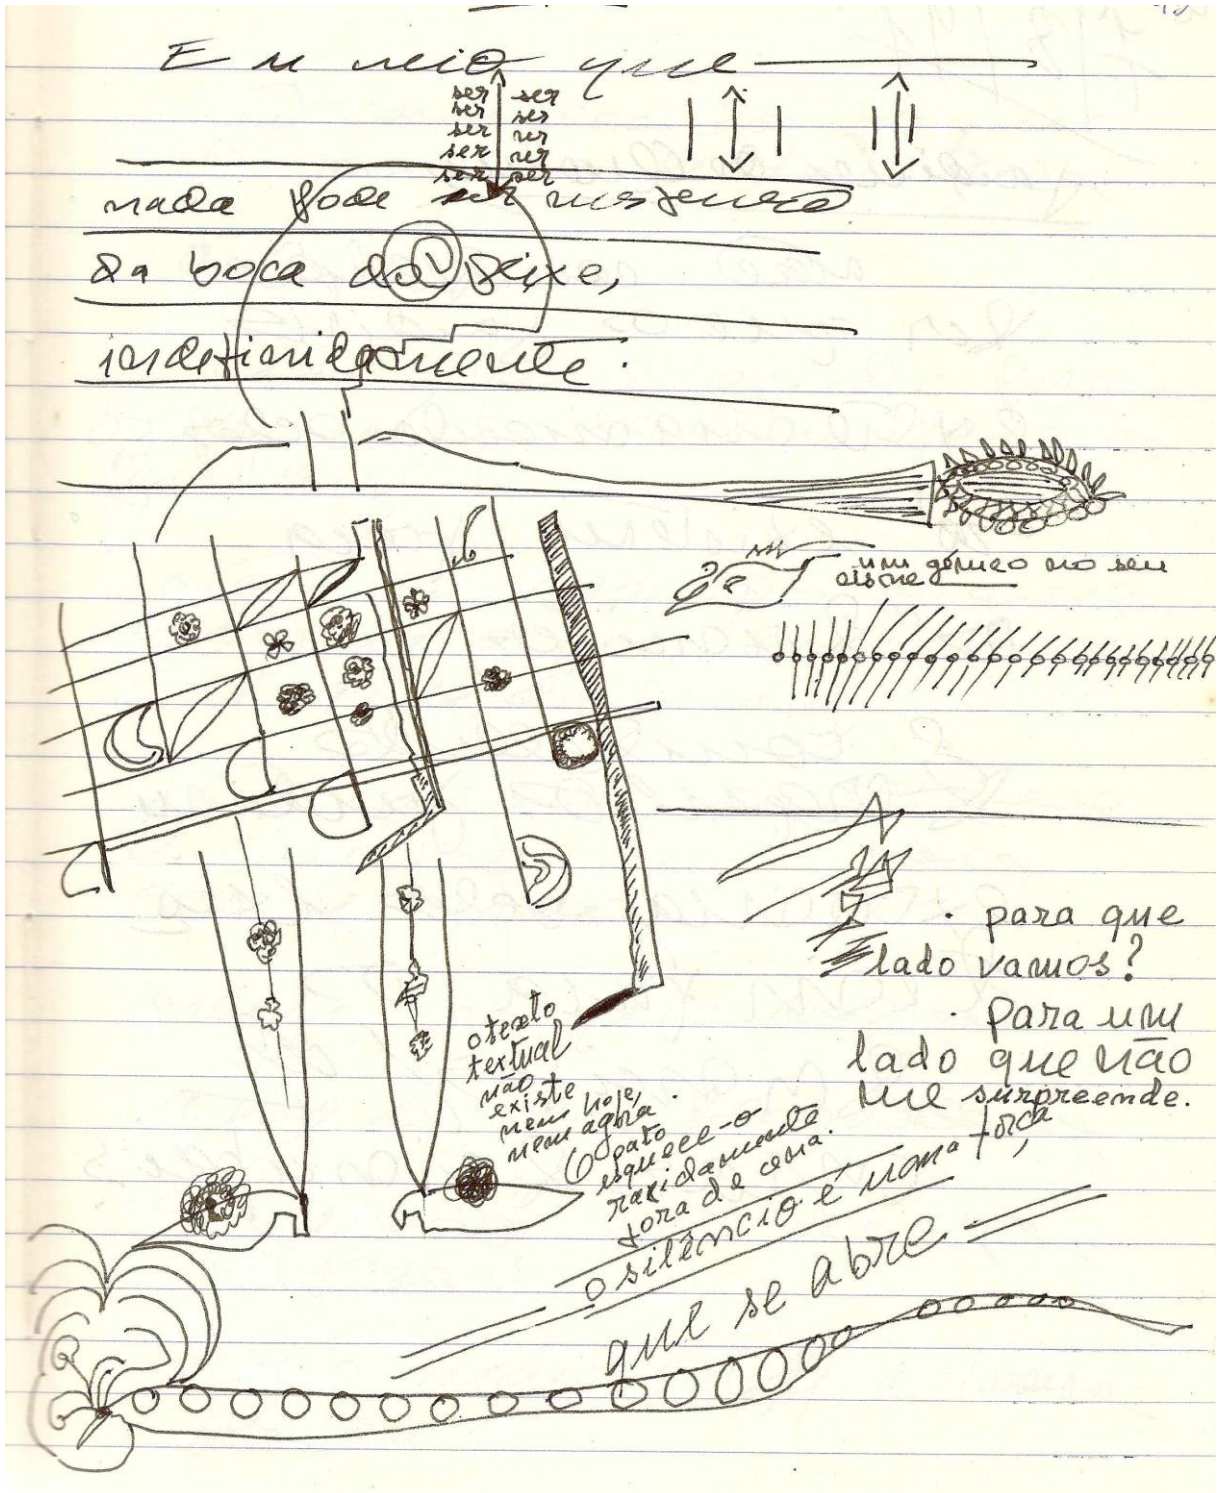 Eu creio que
ser ser
ser ser
ser ser
ser ser
ser ser
nada pode ser
da boca do peixe,
indefinidamente.
um génio no seu
cisne
. para que
lado vamos?
. para um
lado que não
me surpreende.
o texto
textual
não
existe
nem hoje,
nem agora.
O pato
esquece-o
rapidamente
fora de cena.
o silêncio é uma força,
que se abre